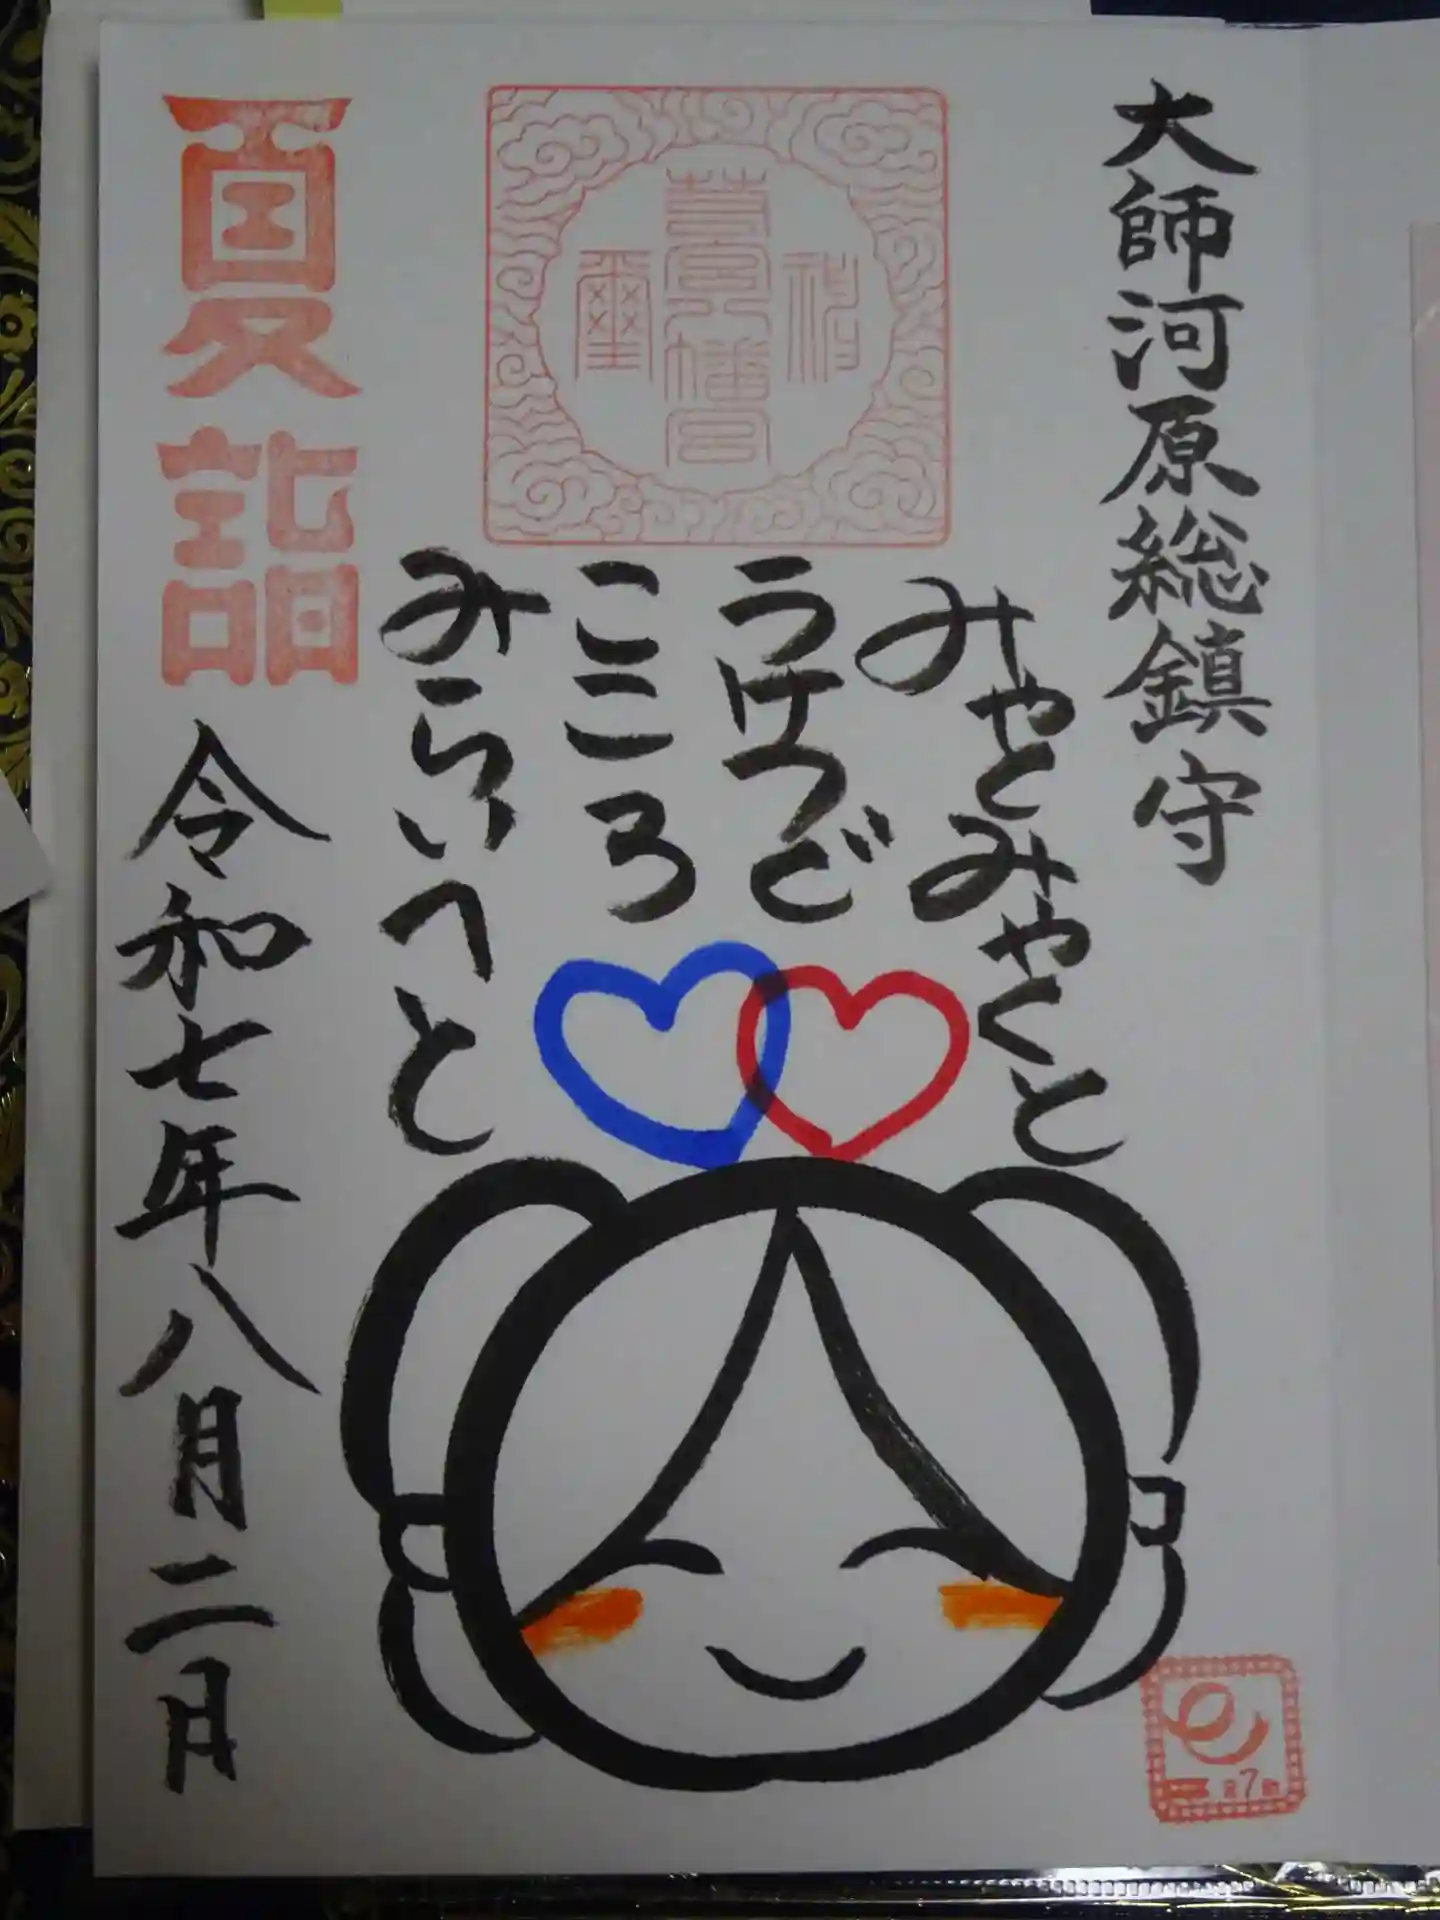 大師河原総鎮守
みゃくみゃくと
うけつぐ
こころ
みらいへと
若宮八幡宮
夏詣
令和七年八月二日